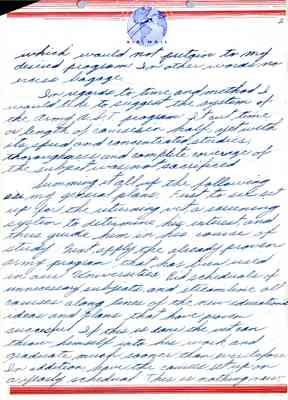 2
AIR MAIL
which would not pertain to my
desired program. In other words no
excess bagage.
In regards to time and method I
would like to suggest the system of
the Army A.S.T. program. It cut time
or length of courses in half, yet with
its speed and concentrated studies,
thoroughness and complete coverage of
the subject was not sacrificed.
Summing it all up the following
are my general plans. First to set
up for the returning vet a screening
system to determine his interest and
then guide him in his course of
study. Just apply the already proven
army program that has been used
in our Universities. Rid schedules of
unnecessary subjects, and streamline all
courses along lines of the new educational
ideas and plans that have proven
successful. If this is done the vet can
throw himself into his work and
graduate much sooner than ever before.
In addition have the courses set up on
a yearly schedule. This is nothing new